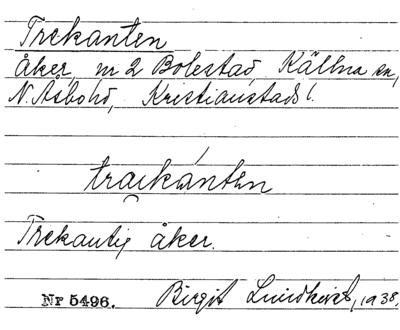 Trekanten
Åker, nr 2 Bolestad, Källna sn,
N. Åsbo hd, Kristianstads l.
traikánten
Trekantig åker.
Nr 5496. Birgit Lundkvist, 1938.